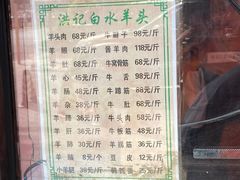 洪记白水羊头
羊头肉 68元/斤 牛腱子 98元/斤
羊脸 68元/斤 酱羊肉 118元/斤
羊肚 68元/斤 牛窝骨筋 68元/斤
羊心 45元/斤 牛舌 98元/斤
羊肠 48元/斤 牛蹄筋 68元/斤
羊杂 38元/斤 牛肚 68元/斤
羊蹄 38元/斤 牛头肉 58元/斤
羊肝 38元/斤 牛板筋 58元/斤
羊肺 30元/斤 羊蹄筋 58元/斤
羊脑 8元/个 豆皮 12元/斤
小羊腿 38元/斤 25元/斤